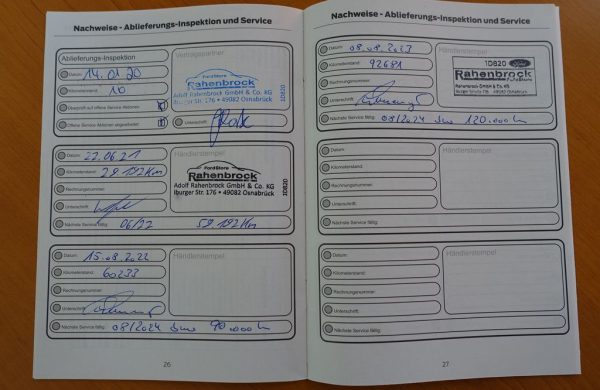 Nachweise - Ablieferungs-Inspektion und Service
Ablieferungs-Inspektion
Datum: 14.01.20
Kilometerstand: 10
Überprüft auf offene Service-Aktionen
Offene Service-Aktionen abgearbeitet
Vertragspartner
FordStore
Rahenbrock
Adolf Rahenbrock GmbH & Co. KG
Burger Str. 176 • 49082 Osnabrück
1D820
Unterschrift:
Datum: 22.06.21
Kilometerstand: 29.192 Km
Rechnungsnummer:
Unterschrift:
Nächste Service fällig: 06/22 59.192 Km
Händlerstempel
FordStore
Rahenbrock
Adolf Rahenbrock GmbH & Co. KG
Burger Str. 176 • 49082 Osnabrück
1D820
Datum: 15.08.2022
Kilometerstand: 60233
Rechnungsnummer:
Unterschrift:
Nächste Service fällig: 08/2024 90.000
Händlerstempel
26
Nachweise - Ablieferungs-Inspektion und Service
Datum: 08.08.2023
Kilometerstand: 92681
Rechnungsnummer:
Unterschrift:
Nächste Service fällig: 08/2024 120.000
Händlerstempel
1D820
Ford
Rahenbrock
FordStore
Rahenbrock GmbH & Co. KG
Burger Straße 176 49082 Osnabrück
Datum:
Kilometerstand:
Rechnungsnummer:
Unterschrift:
Nächste Service fällig:
Händlerstempel
Datum:
Kilometerstand:
Rechnungsnummer:
Unterschrift:
Nächste Service fällig:
Händlerstempel
27